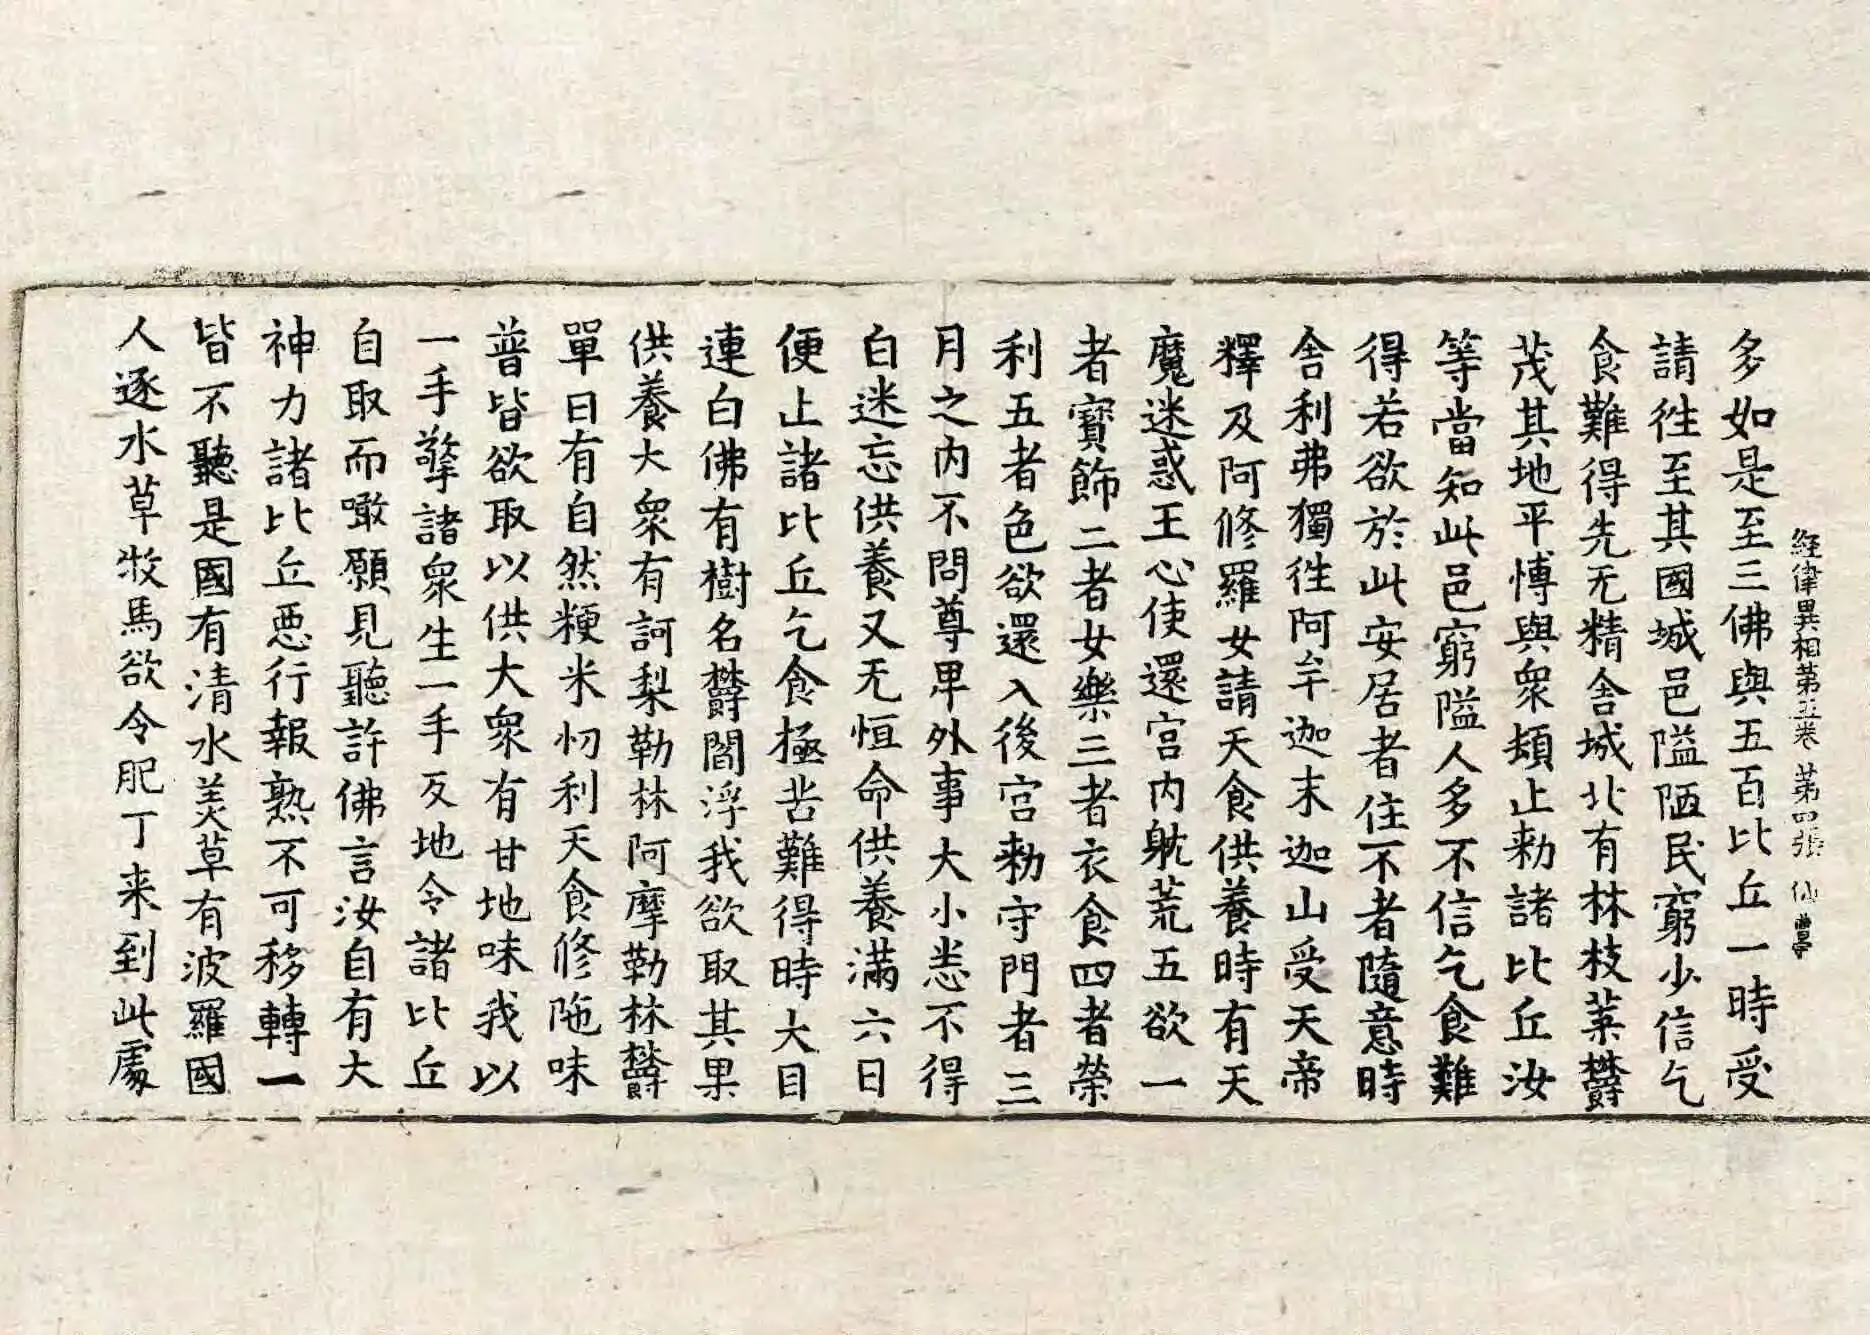 經律異相第五卷 第四張 仙
多如是至三佛與五百比丘一時受
請徃至其國城邑隘陋民窮少信乞
食難得先无精舍城北有林枝葉欝
茂其地平博與衆頓止勑諸比丘汝
等當知此邑窮隘人多不信乞食難
得若欲於此安居者住不者隨意時
舍利弗獨徃阿牟迦末迦山受天帝
釋及阿修羅女請天食供養時有天
魔迷惑王心使還宮内躭荒五欲一
者寶飾二者女樂三者衣食四者榮
利五者色欲還入後宮勑守門者三
月之内不問尊卑外事大小悉不得
白迷忘供養又无恒命供養滿六日
便止諸比丘乞食極苦難得時大目
連白佛有樹名欝閻浮我欲取其果
供養大衆有訶梨勒林阿摩勒林欝
單曰有自然粳米忉利天食修陁味
普皆欲取以供大衆有甘地味我以
一手擎諸衆生一手反地令諸比丘
自取而噉願見聽許佛言汝自有大
神力諸比丘惡行報熟不可移轉一
皆不聽是國有清水美草有波羅國
人逐水草牧馬欲令肥丁来到此處